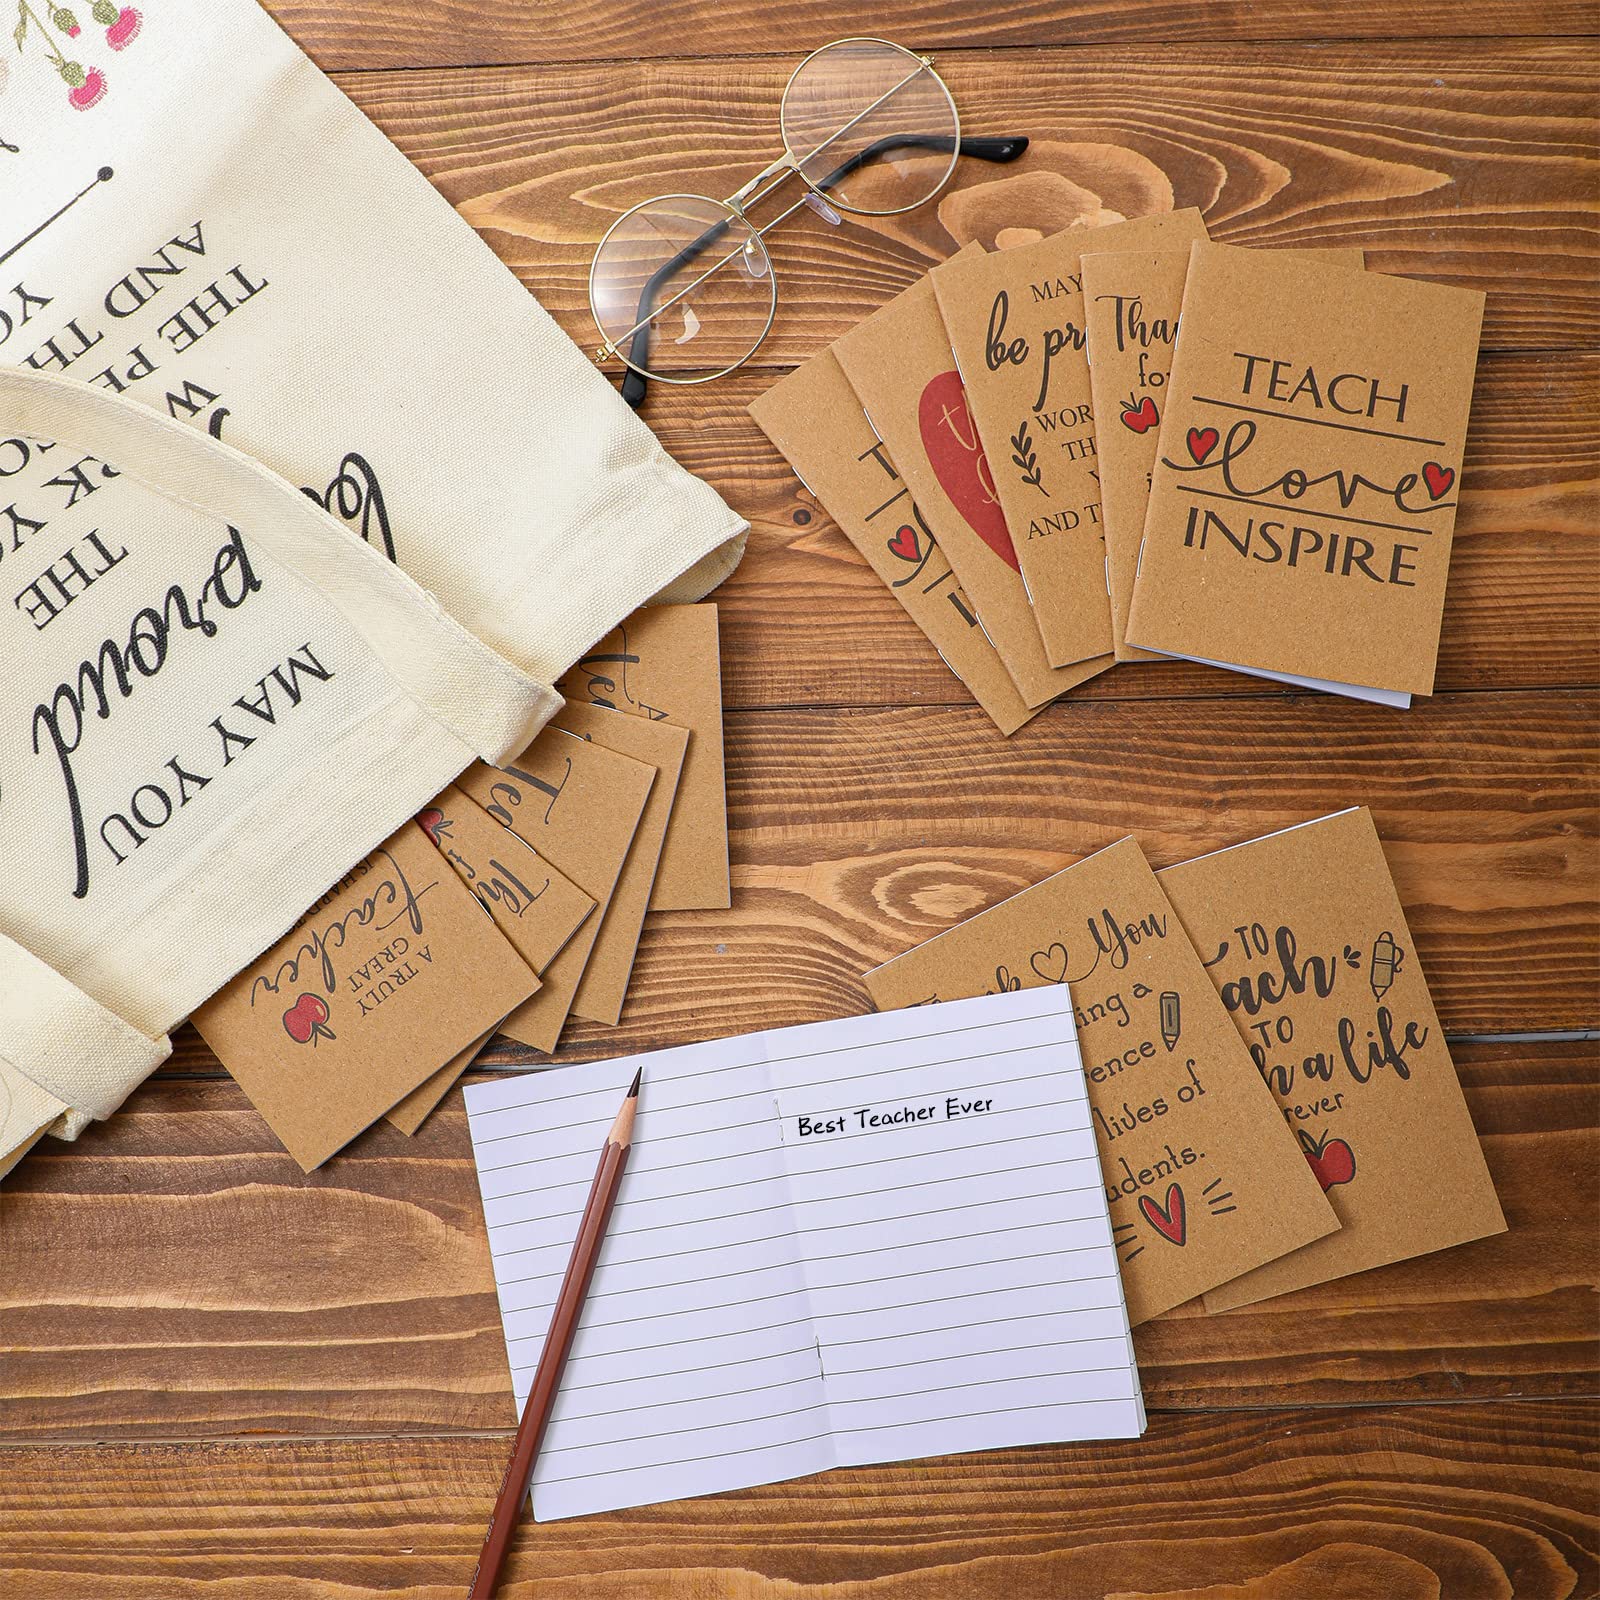 AND TH
THE PE
THE
proud
MAY YOU
MAY
be pr
WOR
TH
AND T
Tha
for
TEACH
love
INSPIRE
teacher
A TRULY
GREAT
You
ing a
ence
lives of
udents.
TO
ach
TO
h a life
rever
Best Teacher Ever